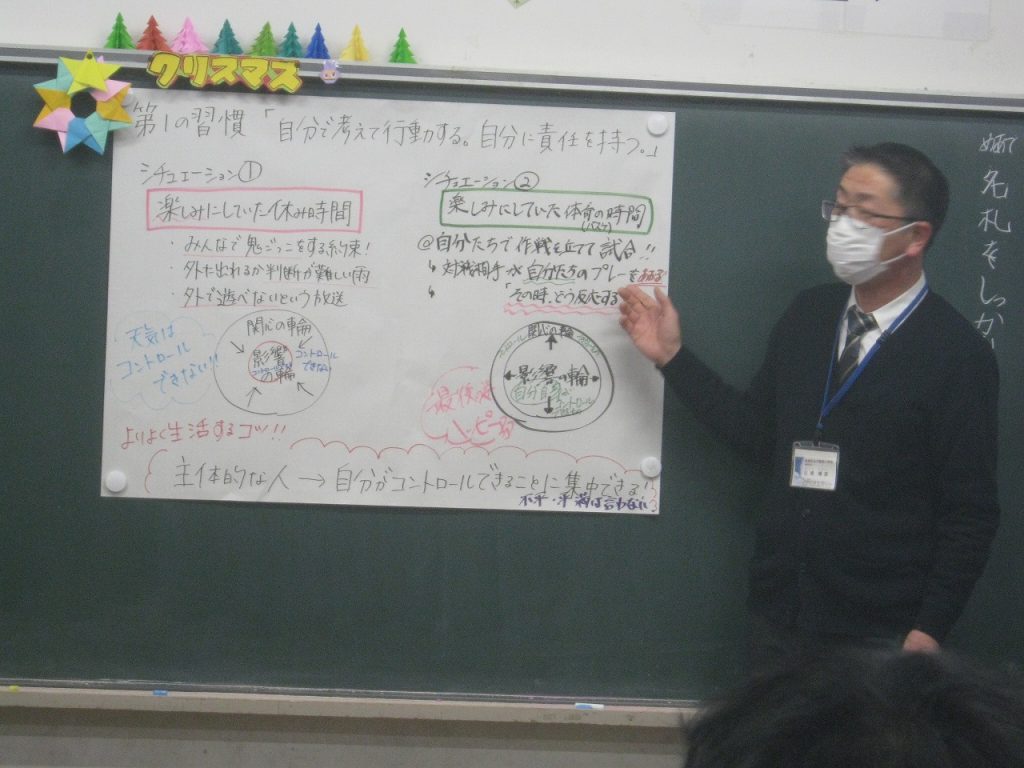 クリスマス
第1の習慣「自分で考えて行動する。自分に責任を持つ。」
シチュエーション①
楽しみにしていた休み時間
・みんなで鬼ごっこをする約束!
・外に出れるか判断が難しい雨
・外で遊べないという放送
天気は
コントロール
できない!!
関心の輪
影響
の輪
コントロール
できない
よりよく生活するコツ!!
シチュエーション②
楽しみにしていた体育の時間
(バスケ)
@自分たちで作戦を立てて試合!!
対戦相手が自分たちのプレーを
「その時、どう反応する
関心の輪
影響の輪
自分自身
コントロール
最後は
ハッピー
主体的な人→自分がコントロールできることに集中できる!
不平・不満は言わない
名札をしっか